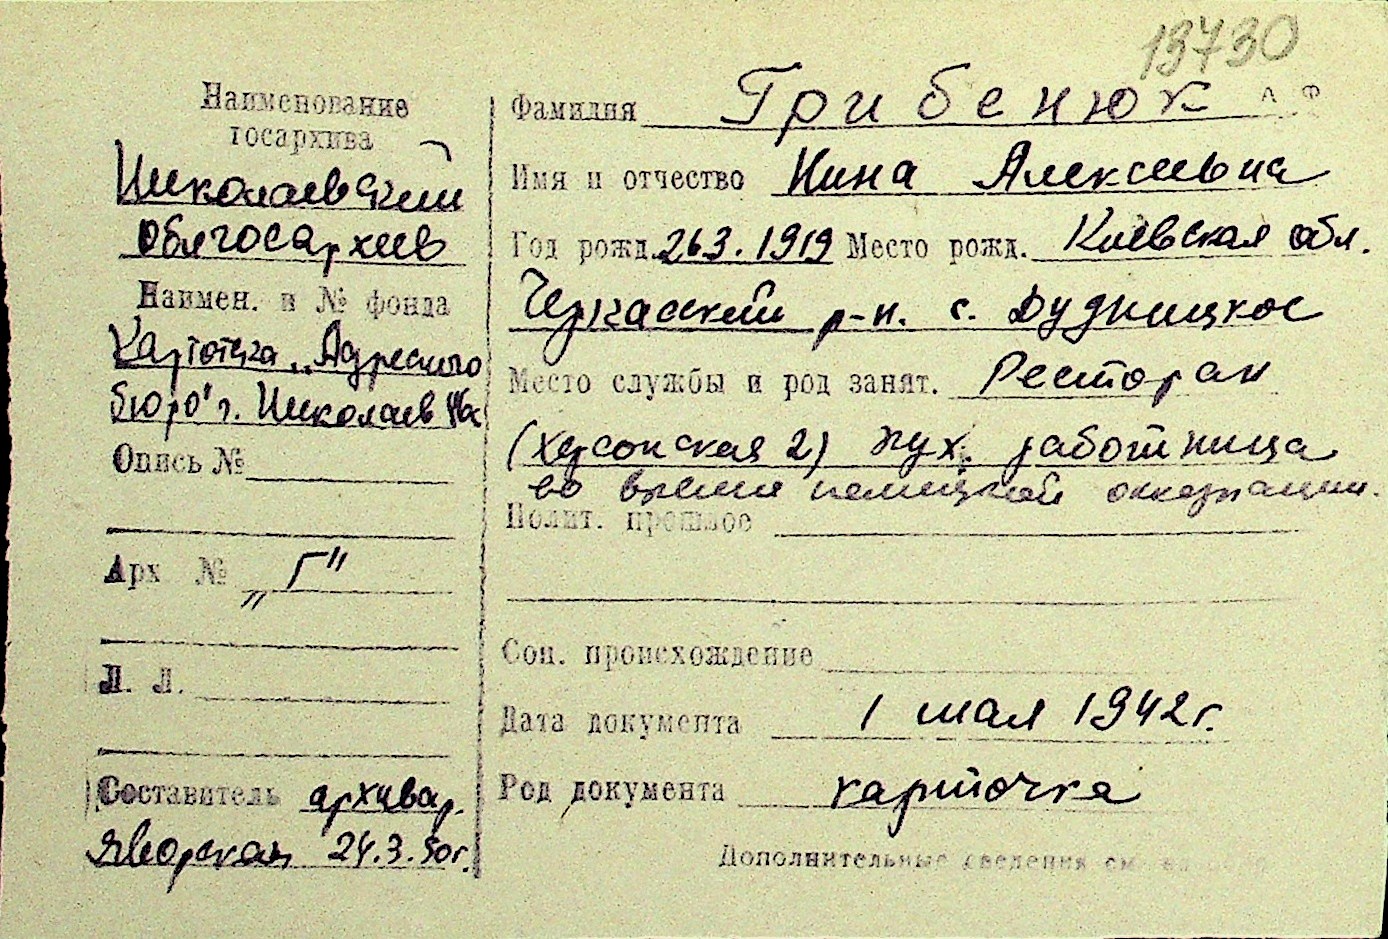 13730
Наименование
госархива
Николаевский
Облгосархив
Наимен. и № фонда
Картотека „Адресного
бюро" г. Николаев
Опись №
Арх № „Г"
Л. Л.
Составитель архивар.
Яворская 24.3.50г.
Фамилия Грибенюк А Ф
Имя и отчество Нина Алексеевна
Год рожд. 26.3.1919 Место рожд. Киевская обл.
Черкасский р-н. с. Дудницкое
Место службы и род занят. Ресторан
(Херсонская 2) кух. работница
во время немецкой оккупации.
Полит. прошлое
Соц. происхождение
Дата документа 1 мая 1942г.
Род документа карточка
Дополнительные сведения см.